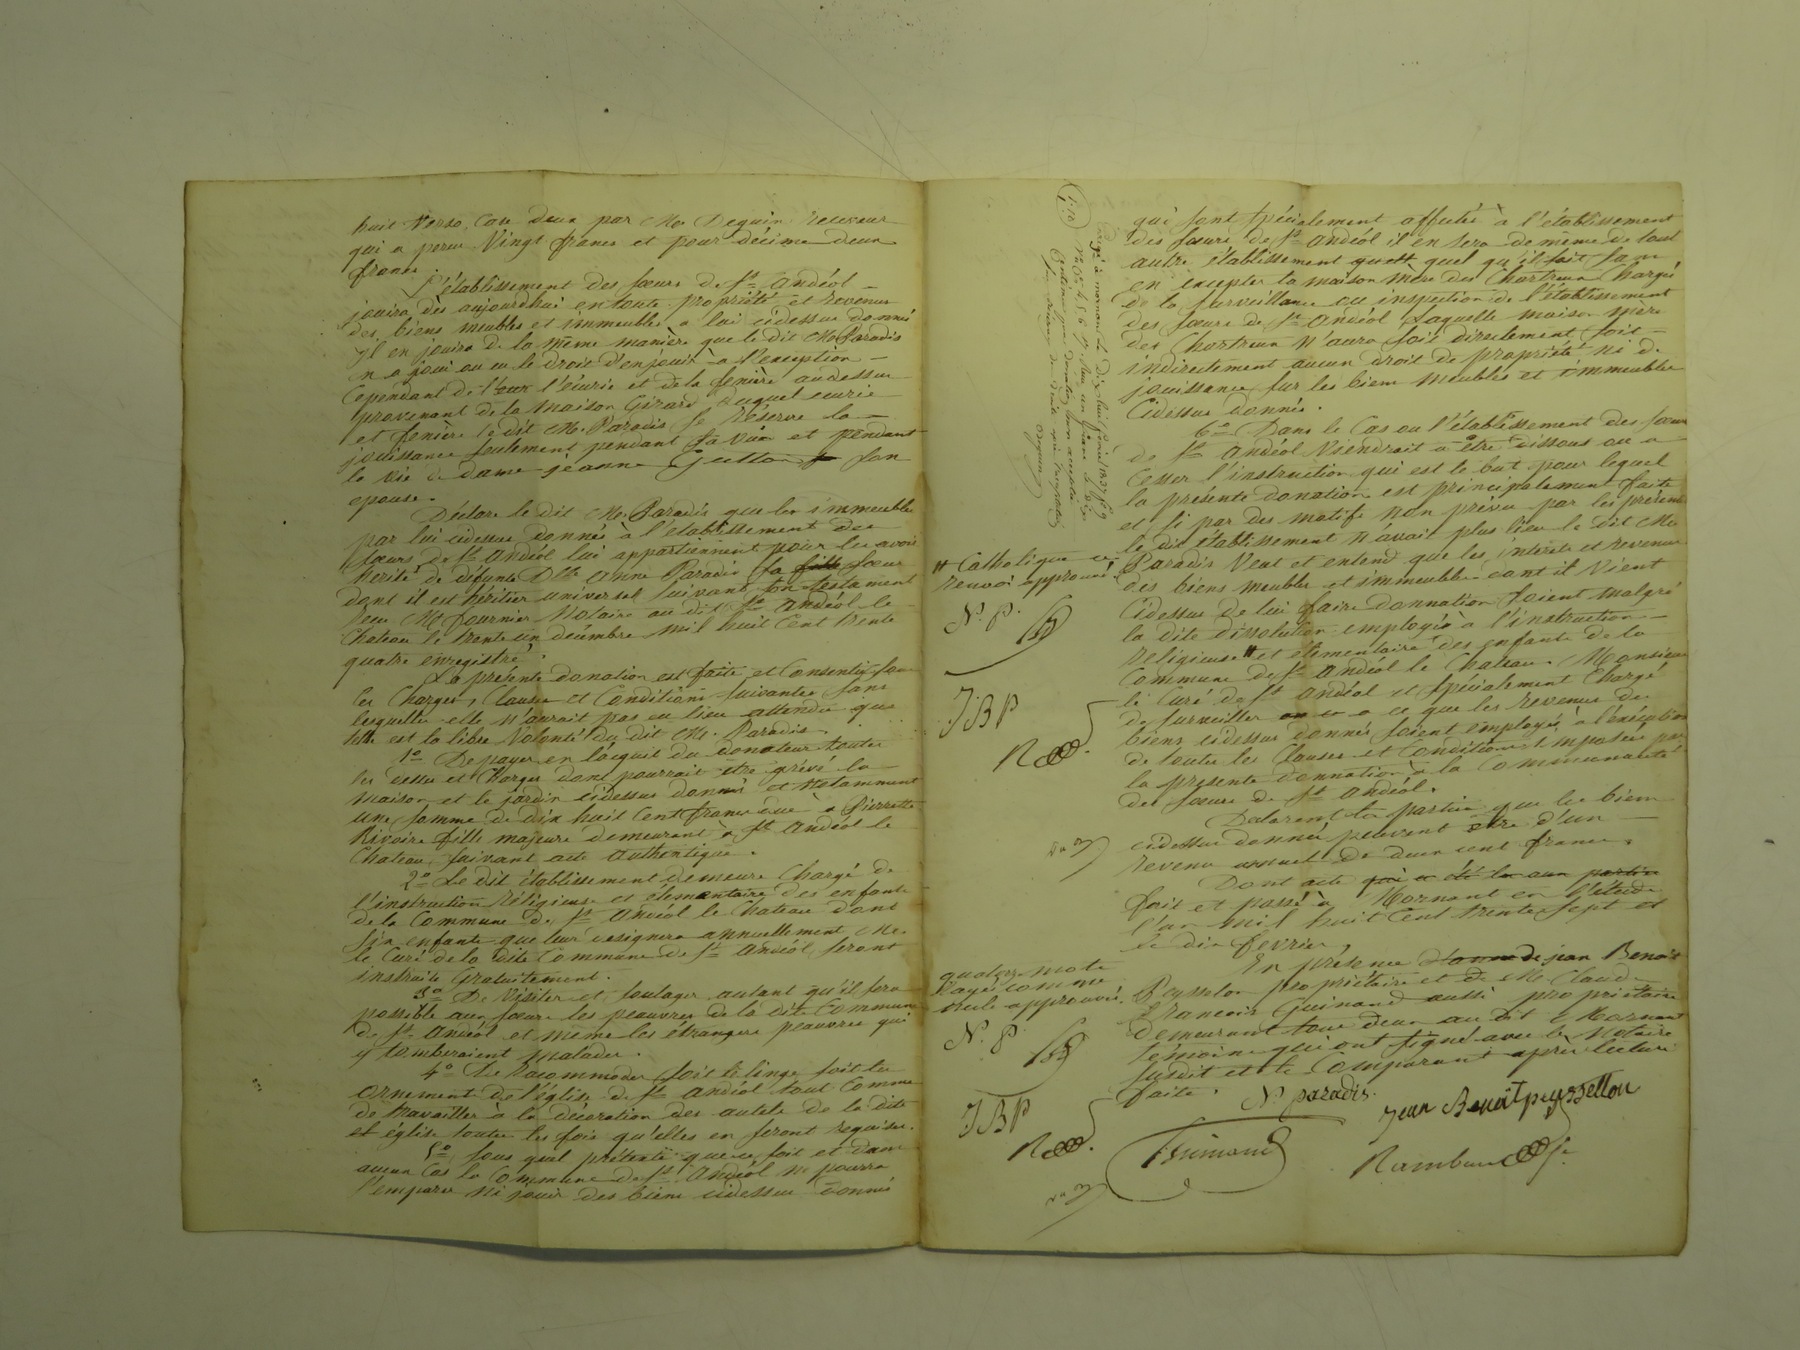 huit verso, Case deux par Mr Dequin receveur
qui a perçu Vingt francs et pour décime deux
francs.
L'établissement des sœurs de St Andéol
jouira dès aujourdhui en toute propriété et revenus
des biens meubles et immeubles a lui cidessus donnés
Il en jouira de la même manière que le dit Mr Paradis
en a joui ou eu le droit d'en jouir à l'exception
Cependant de l'écurie et de la fenière audessus
provenant de la maison Girard, duquel écurie
et fenière le dit Mr Paradis se Réserve la
jouissance seulement pendant sa vie et pendant
la vie de dame jeanne Guillon son
epouse.
Déclare le dit Mr Paradis que les immeubles
par lui cidessus donnés à l'etablissement des
sœurs de St Andéol lui appartiennent pour les avoir
hérité de défunte Dlle Anne Paradis sa sœur
dont il est héritier universel suivant son testament
reçu Me fournier Notaire au dit St Andéol le
Chateau le trente un décembre mil huit Cent trente
quatre enregistré.
La présente donation est faite et Consentie sous
les Charges, Clauses et Conditions suivantes sans
lesquelles elle n'aurait pas eu lieu attendu que
telle est la libre Volonté du dit Mr Paradis.
1o De payer en l'acquit du donateur toutes
les dettes et Charges dont pourrait être grévé la
maison et le jardin cidessus donnés et Notamment
une somme de dix huit Cent francs due à Pierrette
Rivoire fille majeure demeurant à St Andéol le
Chateau, suivant acte authentique.
2o Le dit établissement demeure Chargé de
l'instruction Réligieuse et élementaire des enfants
de la Commune de St Andéol le Chateau dont
six enfants que leur designera annuellement Mr
le Curé de la dite Commune de St Andéol, seront
instruits Gratuitement.
3o De Visiter et soulager autant qu'il sera
possible aux sœurs les peauvres de la dite Commune
de St Andéol et même les étrangers peauvres qui
y tomberaient malades.
4o De Racommoder soit le linge soit les
ornement de l'église de St Andéol tout Comme
de travailler à la décoration des autels de la dite
église toutes les fois qu'elles en seront requises.
5o Sous quel prétexte que ce soit et dans
aucun Cas la Commune de St Andéol ne pourra
s'emparer ni jouir des biens cidessus donnés
qui sont spécialement affectés à l'établissement
des sœurs de St Andéol il en sera de même de tout
autre établissement quel qu'il soit sans
en excepter la maison mère des Chartreux Chargée
de la surveillance ou inspection de l'établissement
des sœurs de St Andéol Laquelle maison mère
des Chartreux N'aura soit directement soit
indirectement aucun droit de propriété ni de
jouissance sur les biens meubles et immeubles
Cidessus donnés.
6o Dans le Cas ou l'établissement des sœurs
de St Andéol Viendrait a être dissous ou a
Cesser l'instruction qui est le but pour lequel
la présente donation est principalement faite
et si par des motifs non prévus par les présentes
le dit établissement n'avait plus lieu le dit Mr
Paradis Veut et entend que les interets et revenus
des biens meubles et immeubles dont il Vient
Cidessus de lui faire donnation soient malgré
la dite dissolution employés a l'instruction
Religieuse # et élementaire des enfants de la
Commune de St Andéol le Chateau. Monsieur
le Curé de St Andéol et spécialement Chargé
de surveiller a ce que les revenus des
biens cidessus donnés soient employés à l'exécution
de toutes les Clauses et Conditions imposées par
la présente donnation à la Communauté
des sœurs de St Andéol.
Déclarent les parties que les biens
cidessus donnés peuvent être d'un
revenu annuel de deux cent francs.
Dont acte qui a été lu aux parties
fait et passé à Mornant en l'étude
l'an mil huit Cent trente sept et
le dix fevrier,
En présence de jean Benoit
Peysselon propriétaire et de Mr Claude
François Guinand aussi propriétaire
demeurant tous deux au dit Mornant
témoins qui ont signé avec le Notaire
susdit et le Comparant après lecture
faite.
N. paradis.
Jean Benoît peyssellon
Guinand
# Catholique ce
renvoi approuvé
N. P.
JBP
quatorze mots
rayés comme
nuls approuvés.
N. P.
JBP